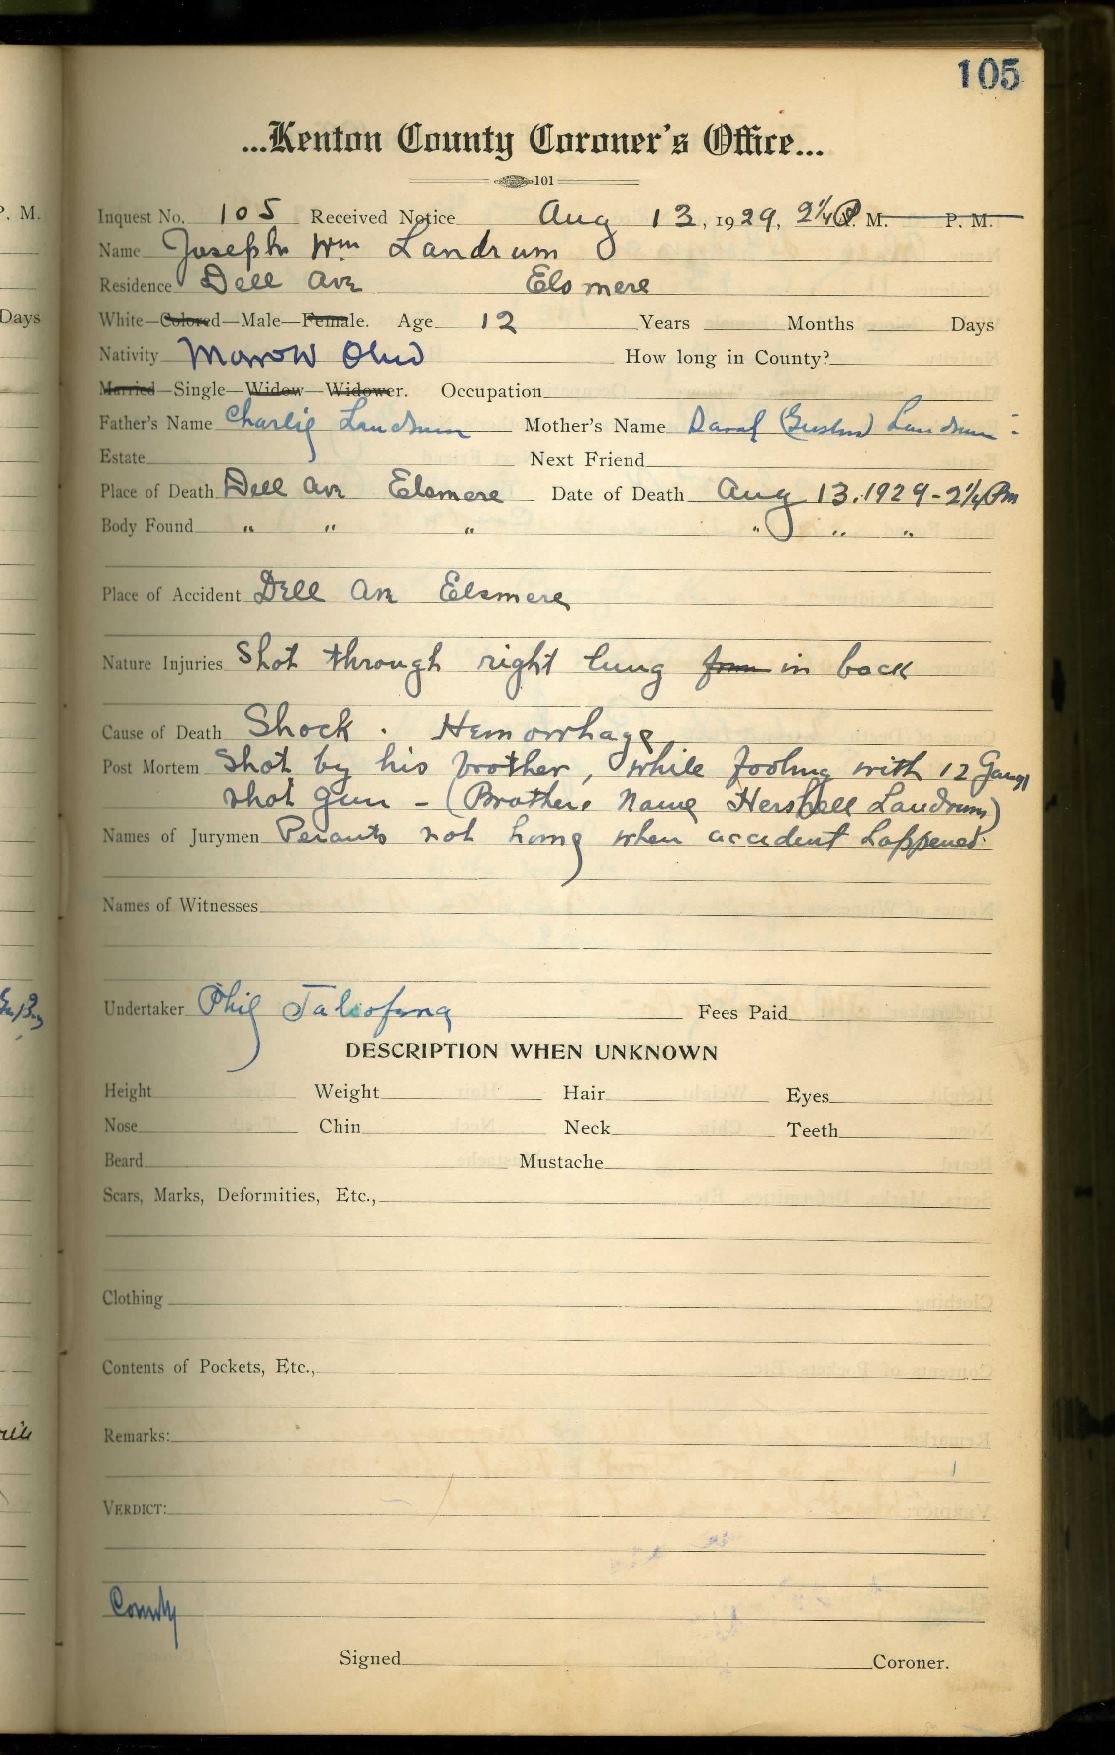 105
...Kenton County Coroner's Office...
101
P. M.
Inquest No. 105 Received Notice Aug 13, 1929, 2 1/4 P. M. P. M.
Name Joseph Wm Landrum
Residence Dell Ave Elsmere
Days
White—Colored—Male—Female. Age 12 Years Months Days
Nativity Morrow Ohio How long in County?
Married—Single—Widow—Widower. Occupation
Father's Name Charlie Landrum Mother's Name Landrum
Estate Next Friend
Place of Death Dell Ave Elsmere Date of Death Aug 13. 1929 - 2 1/4 Pm
Body Found " " " " " "
Place of Accident Dell Ave Elsmere
Nature Injuries Shot through right lung from in back
Cause of Death Shock . Hemorrhage
Post Mortem Shot by his brother, while fooling with 12 Gauge
shot gun - (Brothers Name Hershell Landrum)
Names of Jurymen Perants not home when accident happened.
Names of Witnesses
Undertaker Phil Taliaferro Fees Paid
DESCRIPTION WHEN UNKNOWN
Height Weight Hair Eyes
Nose Chin Neck Teeth
Beard Mustache
Scars, Marks, Deformities, Etc.,
Clothing
Contents of Pockets, Etc.,
Remarks:
VERDICT:
County
Signed Coroner.